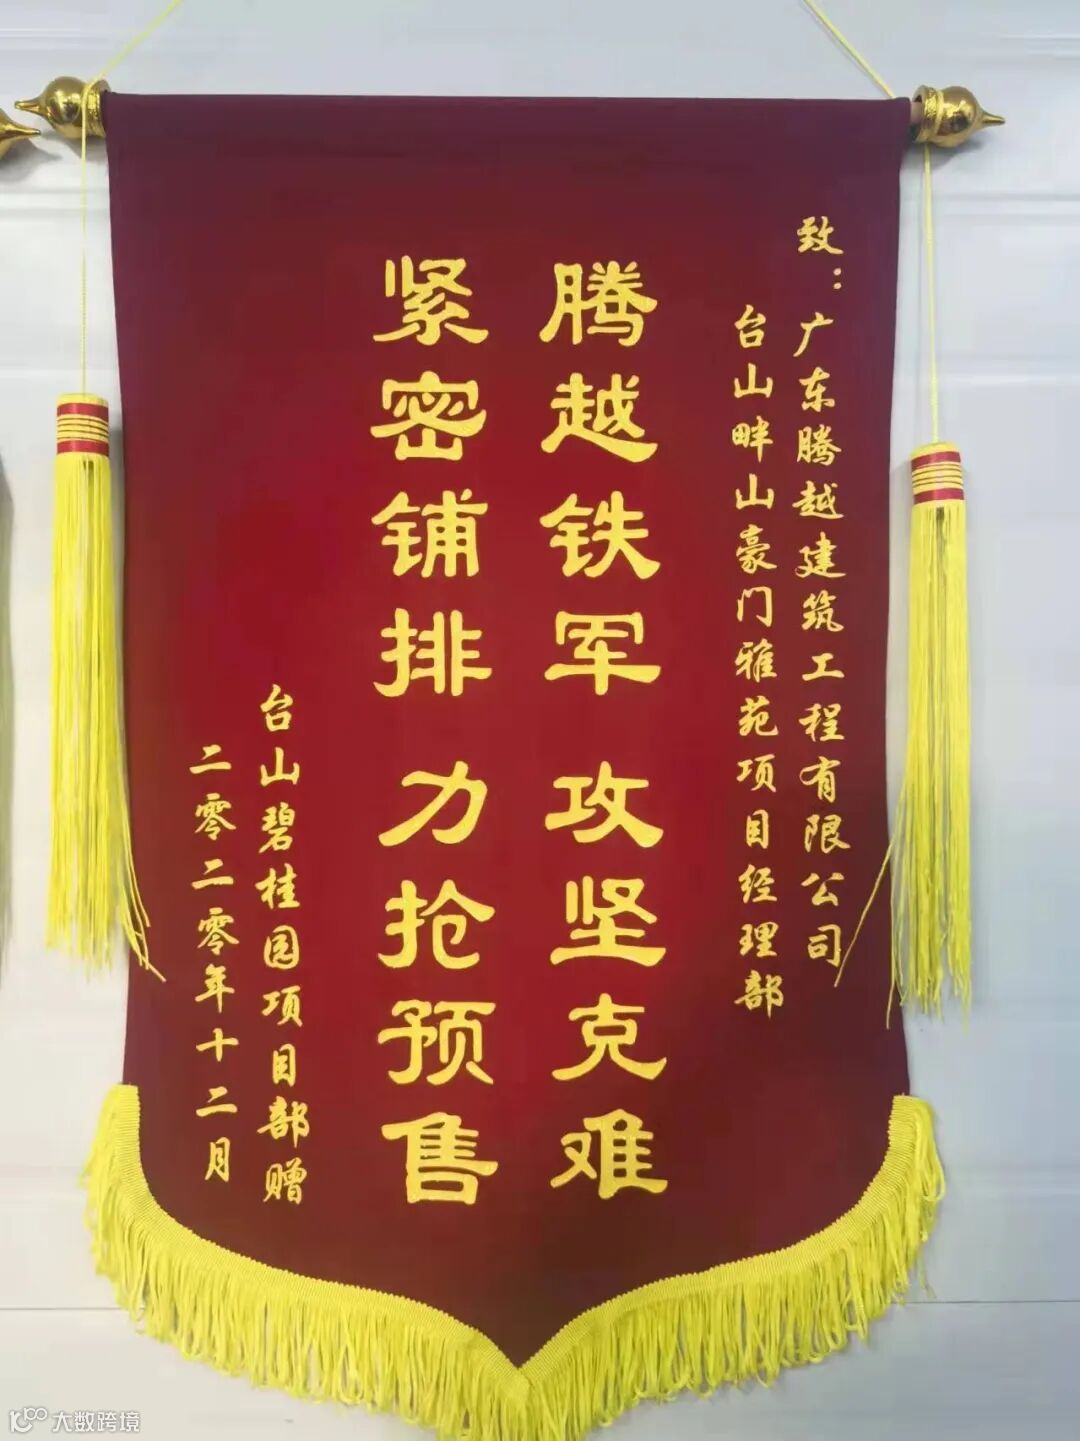 致：广东腾越建筑工程有限公司
台山畔山豪门雅苑项目经理部
腾越铁军 攻坚克难
紧密铺排 力抢预售
台山碧桂园项目部赠
二零二零年十二月
大数跨境